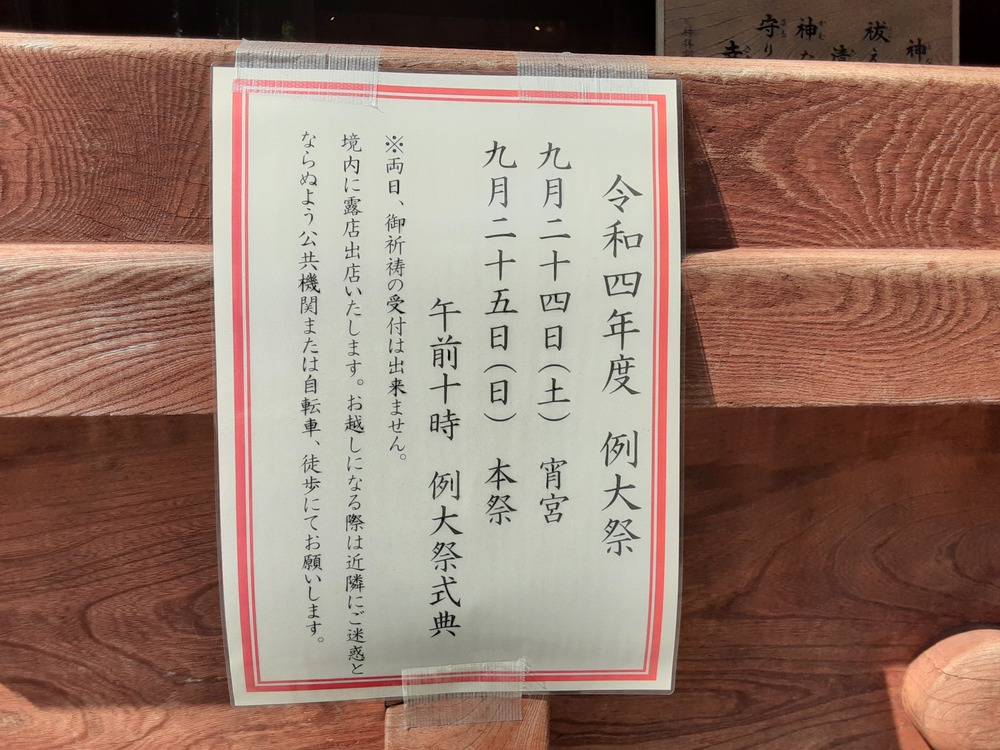 令和四年度　例大祭
九月二十四日（土）　宵宮
九月二十五日（日）　本祭
午前十時　例大祭式典
※両日、御祈祷の受付は出来ません。
境内に露店出店いたします。お越しになる際は近隣にご迷惑と
ならぬよう公共機関または自転車、徒歩にてお願いします。
神
祓え
清
神な
守り
幸